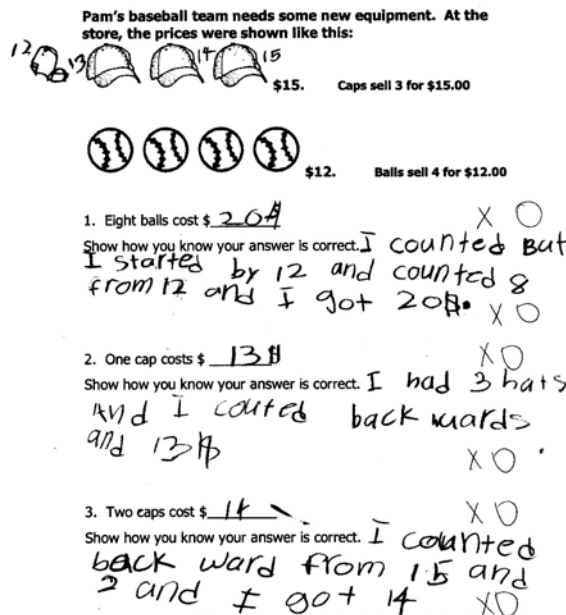 Pam's baseball team needs some new equipment. At the
store, the prices were shown like this:
12 13 14 15
$15. Caps sell 3 for $15.00
$12. Balls sell 4 for $12.00
1. Eight balls cost $ 20$
X O
Show how you know your answer is correct. I counted But
I started by 12 and counted 8
from 12 and I got 20$.
X O
2. One cap costs $ 13$
X O
Show how you know your answer is correct. I had 3 hats
And I couted back wards
and 13$
X O
3. Two caps cost $ 14
X O
Show how you know your answer is correct. I counted
back ward from 15 and
2 and I got 14
X O